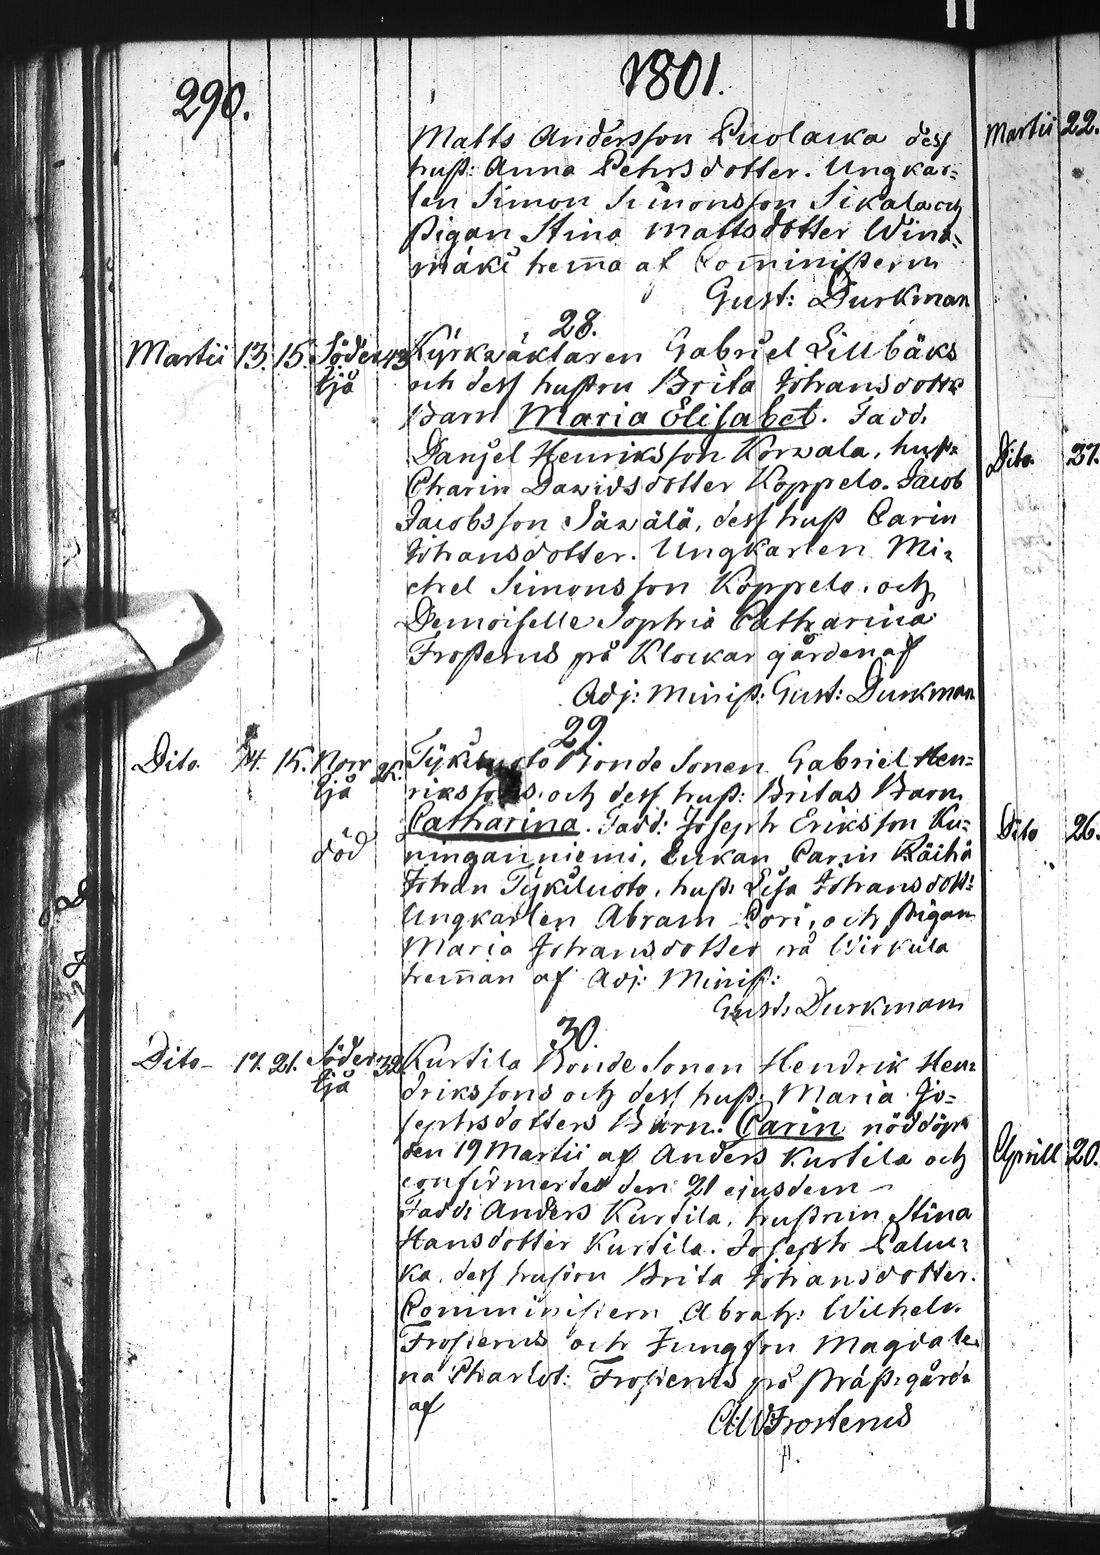 290.
1801.
Matts Andersson Puolacka dess
hust: Anna Pehrsdotter. Ungkar=
len Simon Simonsson Sikala och
Pigan Stina Mattsdotter Wina=
mäki hema af Cominstern
Gust: Durkman
28.
Martii 13. 15. Söder 43 Kyrkwäktaren Gabriel Lillbäks
tjå och dess hustru Brita Johansdotters
Barn Maria Elisabet. Fadd.
Danjel Henriksson Korwala, hust:
Charin Dawidsdotter Koppelo. Jacob
Jacobsson Säwälä, dess hust Carin
Johansdotter. Ungkarlen Mi=
chel Simonsson Koppelo. och
Demoiselle Sophia Catharina
Frosterus på Klockar gården af
Adj: Minist: Gust: Durkman
29
Dito. 14. 15. Norr Tykiluoto Bonde Sonen Gabriel Hen=
tjå rikssons. och dess hust: Britas Barn
Catharina. Fadd: Joseph Eriksson Ku=
död ninganniemi, Enkan Carin Räihä
Johan Tykiluoto, hust: Lisa Johansdott:
Ungkarlen Abram Pöri, och Pigan
Maria Johansdotter på Wirkula
heman af Adj: Minist:
Gust: Durkman
30.
Dito 17. 21. Söder 32 Kurtila Bonde Sonen Hendrik Hen=
tjå drikssons och dess hust: Maria Jo=
sephsdotters Barn. Carin nöddöpt
den 19 Martii af Anders Kurtila och
confirmerdes den 21 ejusdem
Fadd: Anders Kurtila, hustrun Stina
Hansdotter Kurtila. Joseph Palu=
ka, dess hustru Brita Johansdotter.
Comministern Abrah: Wilhelm
Frosterus och Jungfru Magdale
na Charlot: Frosterus på Präst:gård:
af
AWFrosterus
Martii 22.
Dito. 27.
Dito 26.
Aprill 20.